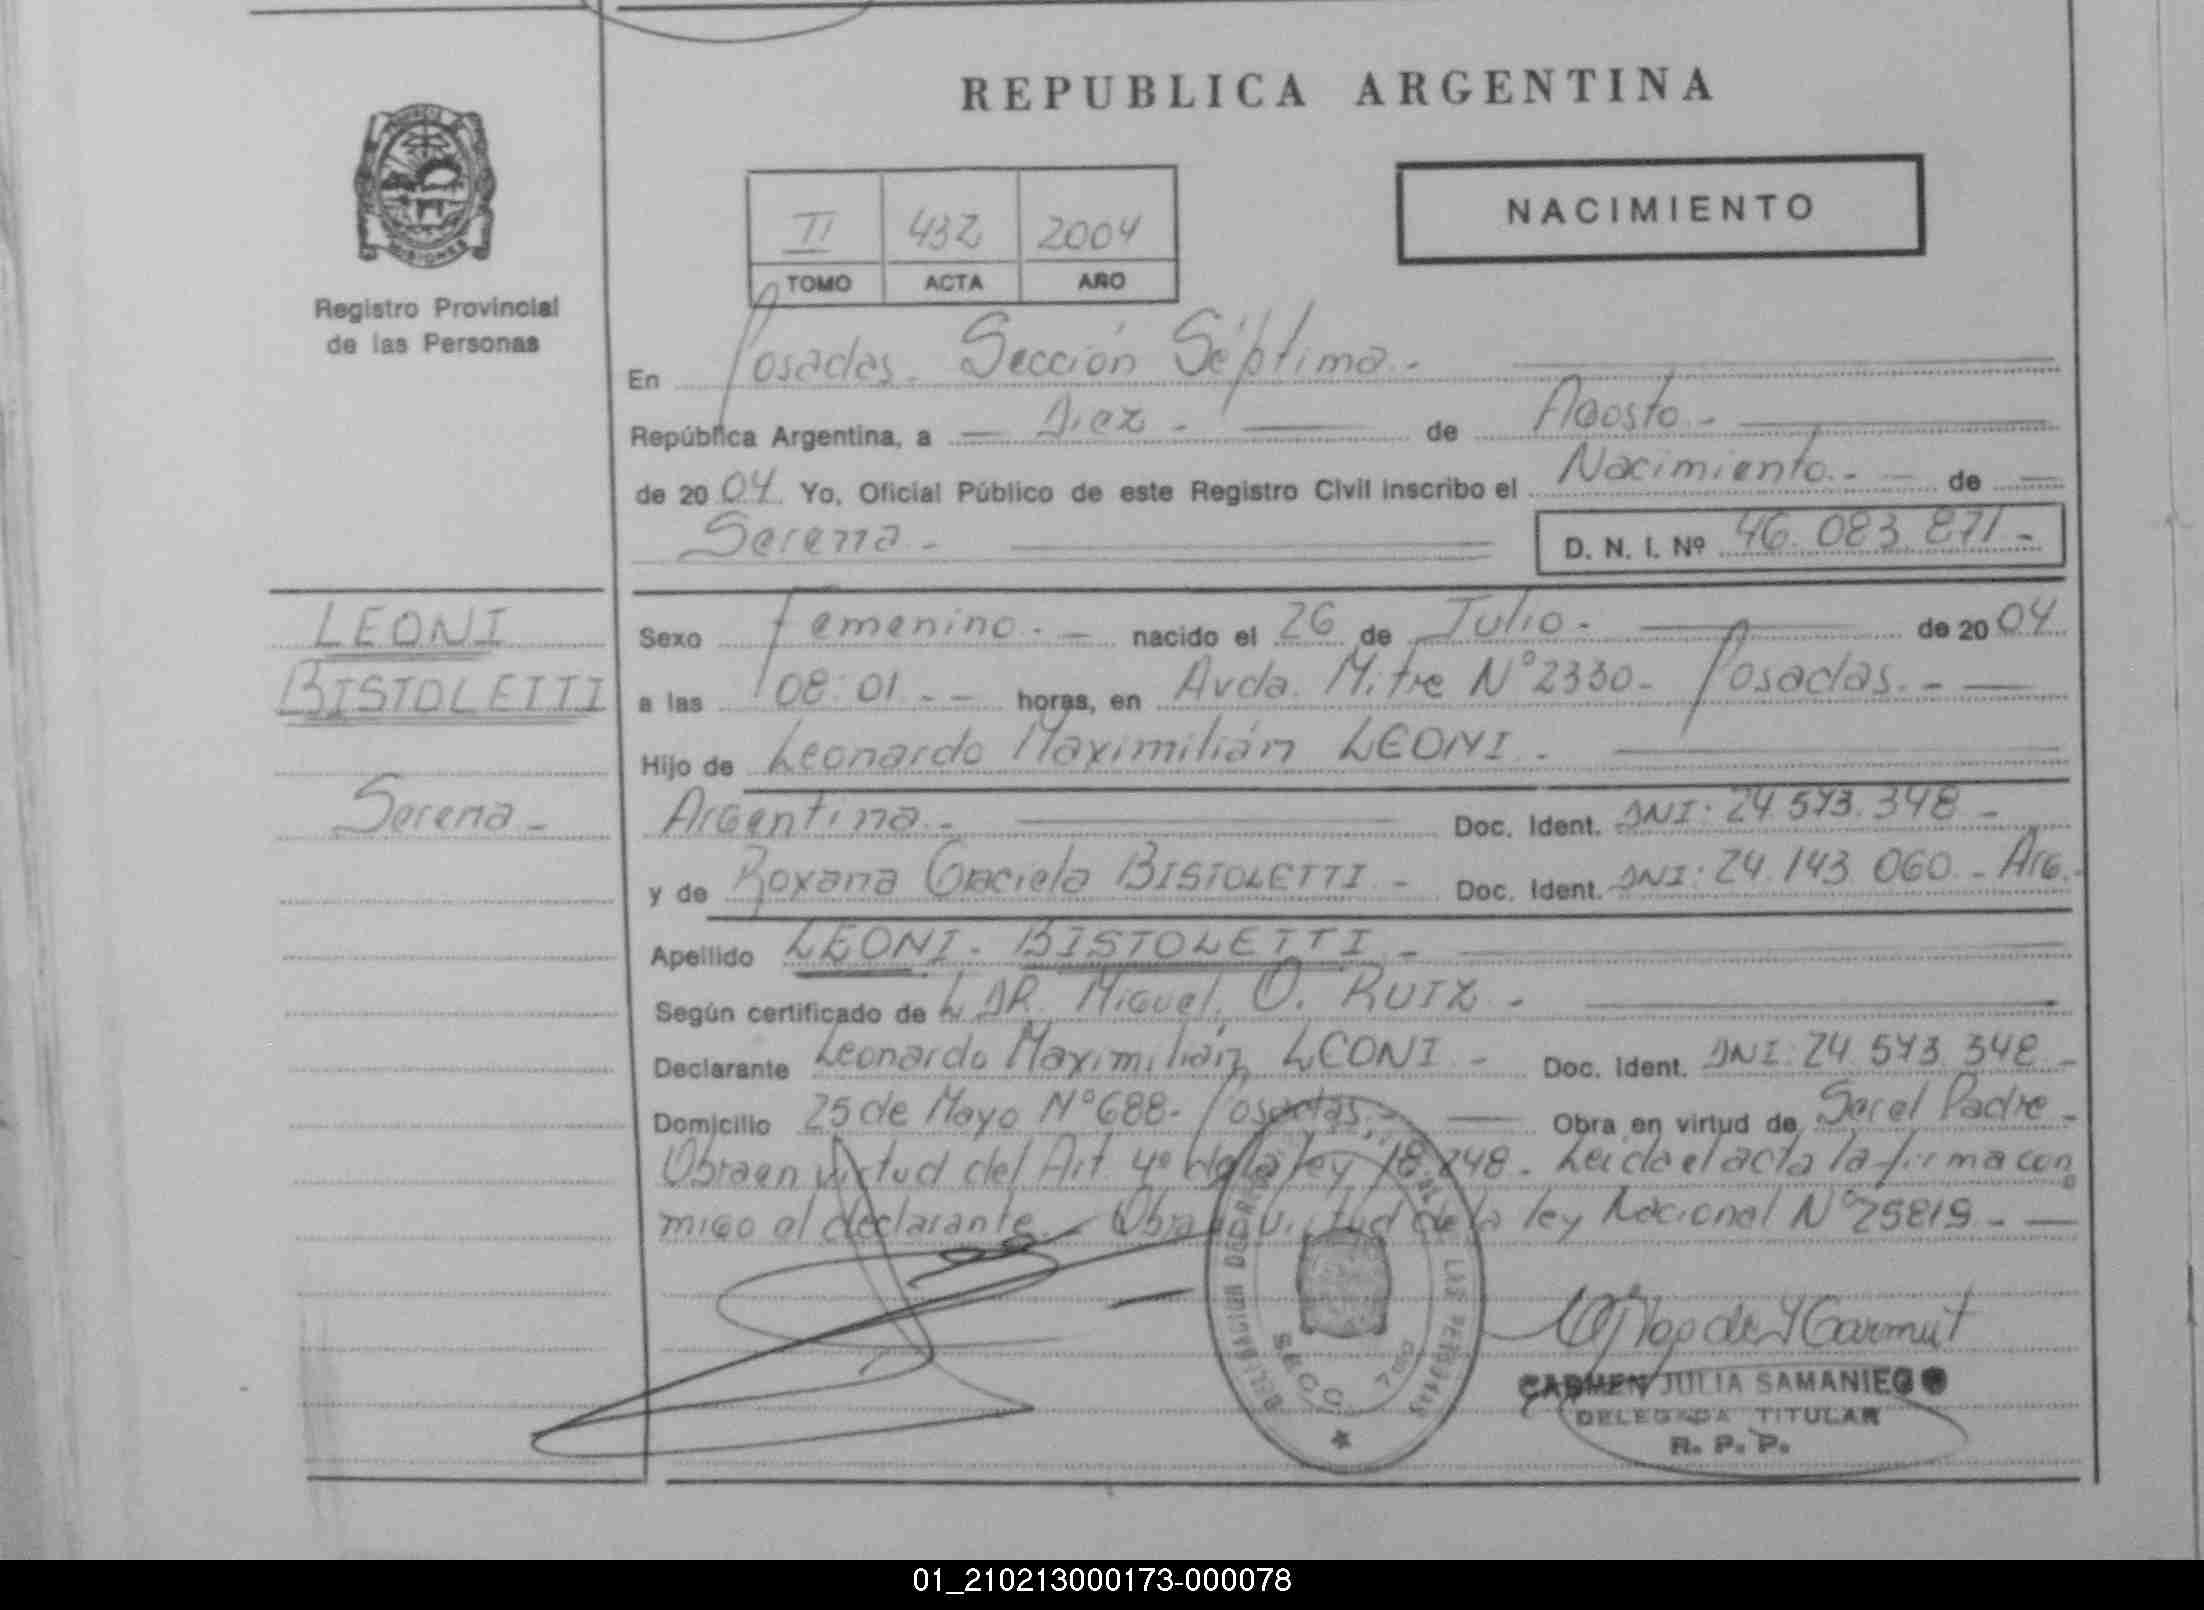 REPUBLICA ARGENTINA
MISIONES
Registro Provincial
de las Personas
II 432 2004
TOMO ACTA AÑO
NACIMIENTO
En Posadas. Sección Séptima.-
República Argentina, a — Diez - — de Agosto.-
de 2004 Yo, Oficial Público de este Registro Civil inscribo el Nacimiento.- — de —
Serena.-
D. N. I. Nº 46.083.871.-
LEONI
BISTOLETTI
Serena.-
Sexo Femenino.- — nacido el 26 de Julio.- — de 2004
a las 08:01.-- horas, en Avda. Mitre Nº 2330- Posadas.- —
Hijo de Leonardo Maximilián LEONI.-
Argentina.- Doc. Ident. DNI: 24.573.348.-
y de Roxana Graciela BISTOLETTI.- Doc. Ident. DNI: 24.143.060.- Arg.-
Apellido LEONI - BISTOLETTI.-
Según certificado de DR. Miguel, O. RUIZ.-
Declarante Leonardo Maximilián LEONI.- Doc. Ident. DNI: 24.573.348.-
Domicilio 25 de Mayo Nº 688- Posadas.- — Obra en virtud de Ser el Padre.-
Obra en virtud del Art. 4º de la ley 18.248.- Leida el acta la firma con
migo el declarante.- Obra en virtud de la ley Nacional Nº 25819.- —
DELEGACION DE LAS PERSONAS
SECC. 7
CARMEN JULIA SAMANIEGO
DELEGADA TITULAR
R. P. P.
01_210213000173-000078